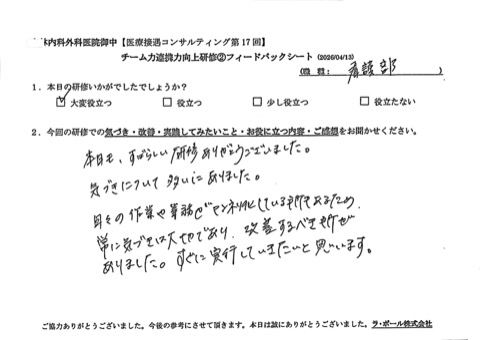 木内科外科医院御中【医療接遇コンサルティング第17回】
チーム力連携力向上研修②フィードバックシート (2026/04/13)
(職種: 看護部)
1．本日の研修いかがでしたでしょうか？
☑大変役立つ □役立つ □少し役立つ □役立たない
2．今回の研修での気づき・改善・実践してみたいこと・お役に立つ内容・ご感想をお聞かせください。
本日も、すばらしい研修ありがとうございました。
気づきについて多いにありました。
日々の作業や業務がマンネリ化している部分もあるため
常に気づきは大切であり、改善するべき所が
ありました。すぐに実行していきたいと思います。
ご協力ありがとうございました。今後の参考にさせて頂きます。本日は誠にありがとうございました。ラ・ポール株式会社